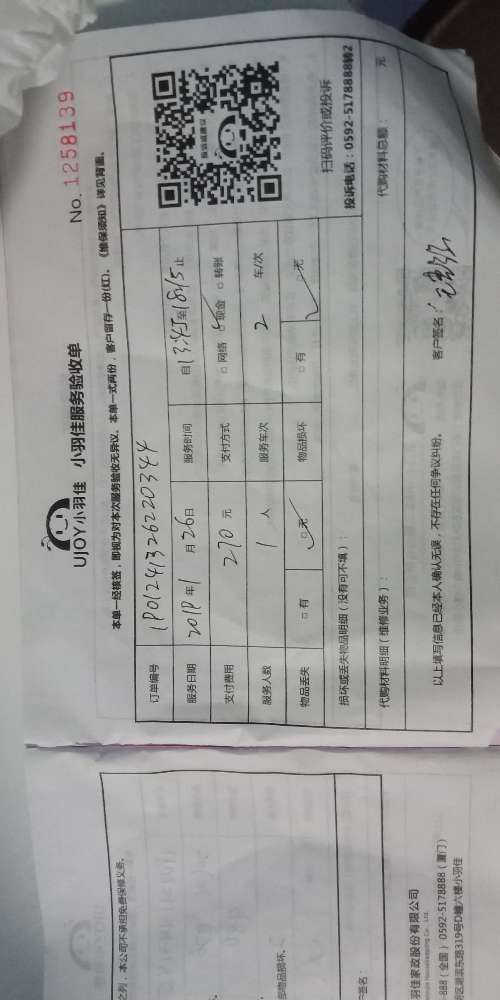 UJOY小羽佳 小羽佳服务验收单
No. 1258139
本单一经核签，即视为对本次服务验收无异议。本单一式两份，客户留存一份(红)。《维保须知》详见背面。
订单编号 1P01241326220344
服务日期 2019年1月26日 服务时间 自13:45至18:15止
支付费用 270元 支付方式 □网络 ☑现金 □转账
服务人数 1人 服务车次 2 车/次
物品丢失 □有 ☑无 物品损坏 □有 ☑无
扫码评价或投诉
投诉电话：0592-5178888转2
损坏或丢失物品明细（没有可不填）：
代购材料明细（维修业务）： 代购材料总额： 元
以上填写信息已经本人确认无误，不存在任何争议纠纷。
客户签名：
之列，本公司不承担免费保修义务。
部物品损坏。
签名：
羽佳家政股份有限公司
888（全国）0592-5178888（厦门）
区湖滨东路319号D幢六楼小羽佳